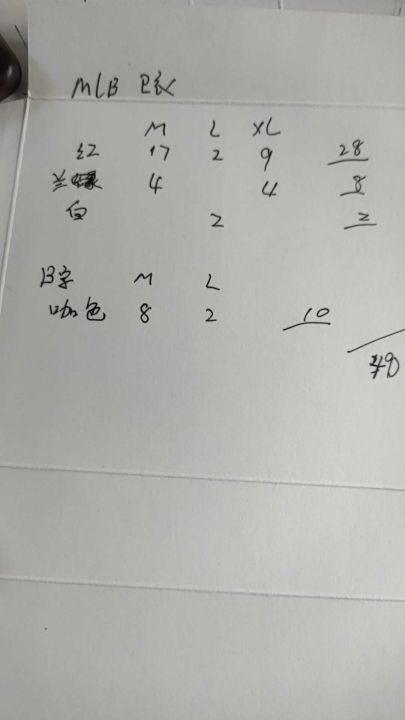 MLB
M L XL
红 17 2 9 28
兰 4 4 8
白 2 2
B字 M L
咖色 8 2 10
48